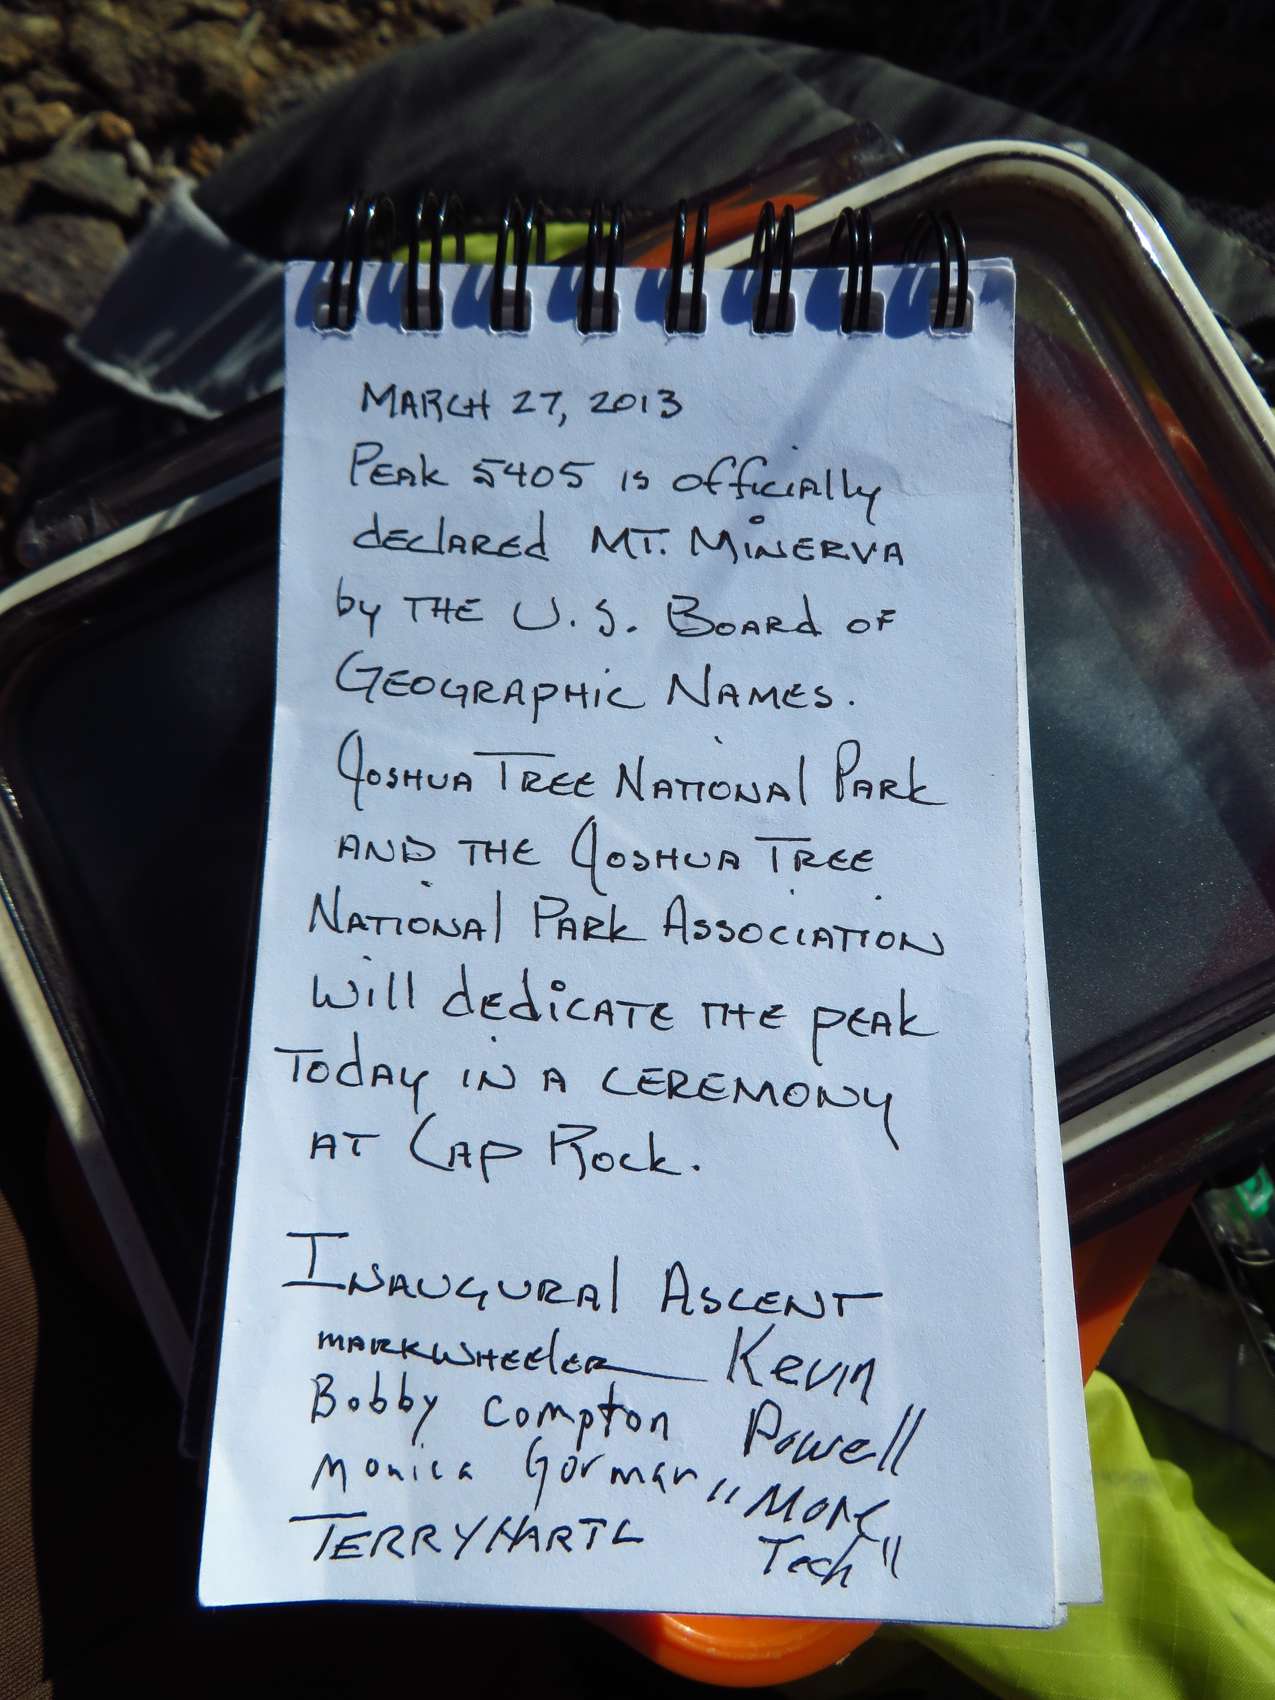 MARCH 27, 2013
PEAK 5405 is officially
declared MT. MINERVA
by THE U.S. Board of
GEOGRAPHIC NAMES.
Joshua Tree National Park
AND THE Joshua Tree
National Park Association
will dedicate the peak
Today in a ceremony
at Cap Rock.
Inaugural Ascent
mark wheeler
Kevin
Bobby Compton
Powell
Monica Gorman
"More
TERRY HARTL
Tech"